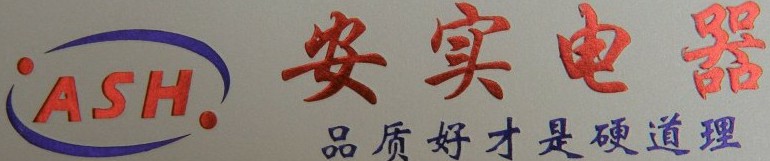 ASH
安实电器
品质好才是硬道理